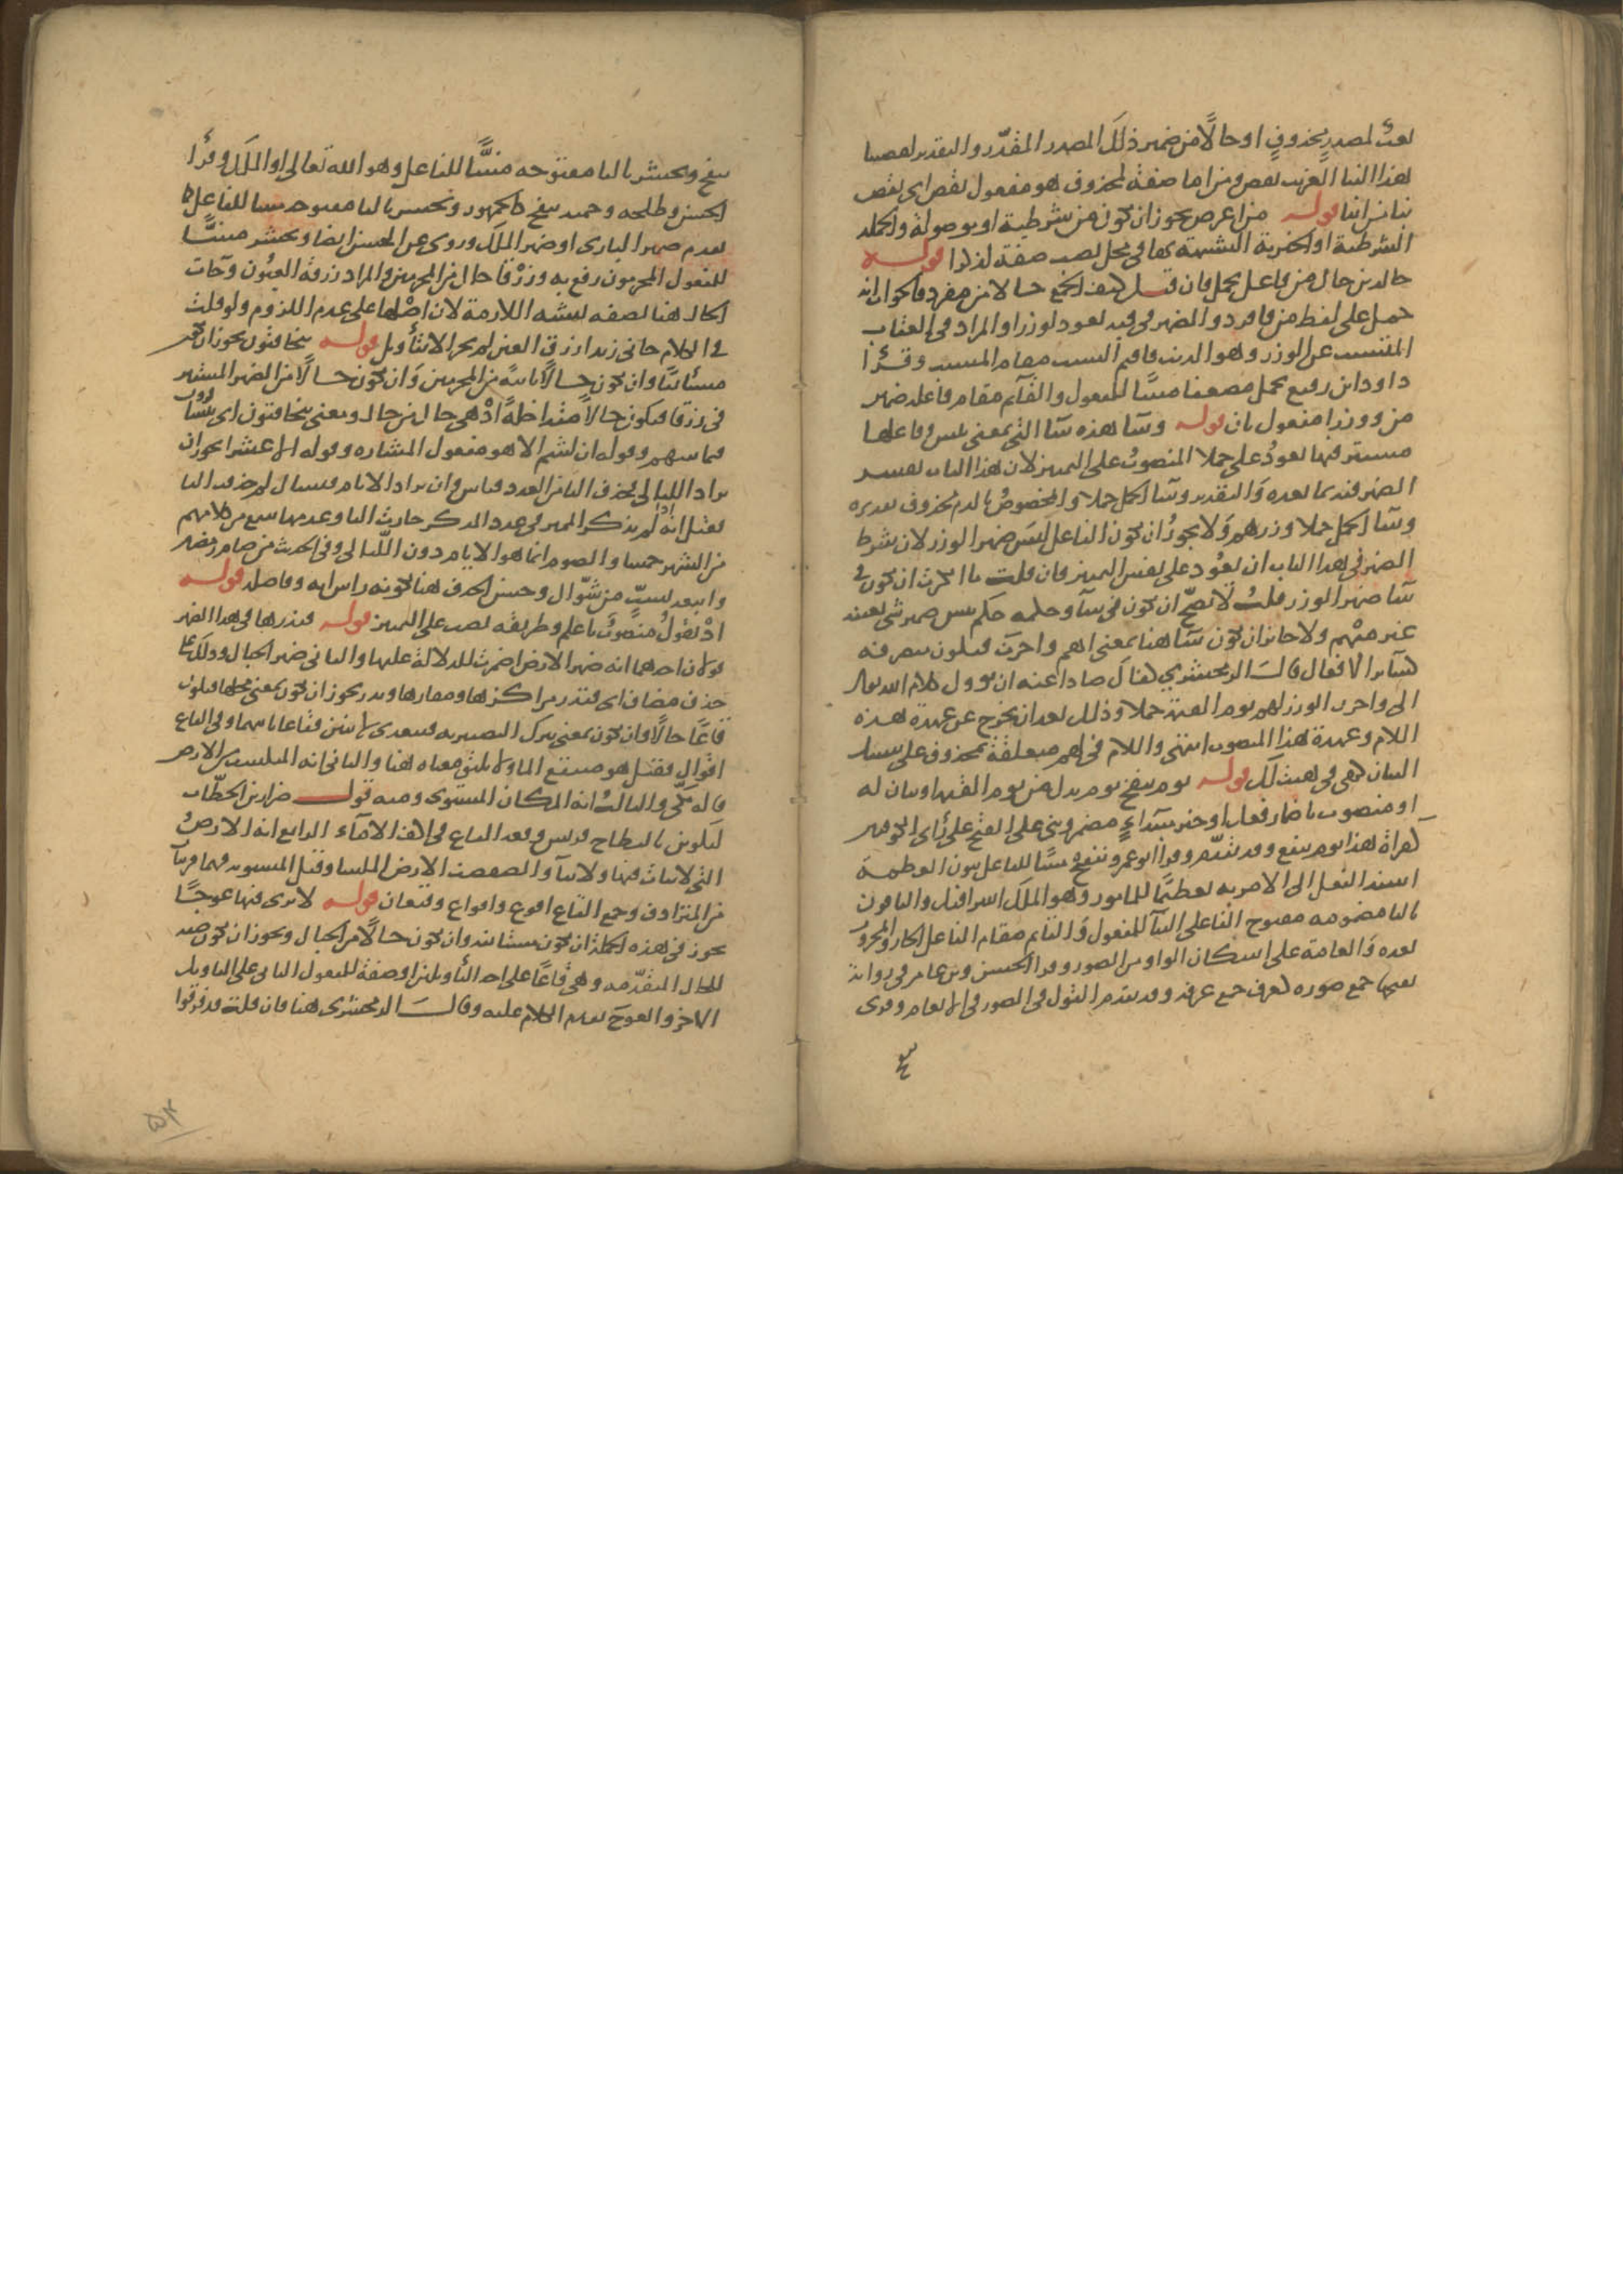 نعت لمصدر محذوف او حالا من ضمير ذلك المصدر المقدر والتقدير لقصصنا
هذا النبا الغريب نقص ومن انبا صفة لمحذوف هو مفعول نقص اى نقص
نبا من انبا قوله من اعرض يجوز ان تكون من شرطية او موصولة والجملة
الشرطية او الخبرية المشبهة بها فى محل نصب صفة لذكرا قوله
خالدين حال من فاعل يحمل فان قيل كيف الجمع حالا من مفرد فالجواب انه
حمل على لفظ من فافرد والضمير فى فيه لعود لوزرا والمراد فى العقاب
المتسبب عن الوزر وهو الذنب فاقيم السبب مقام المسبب وقرا
داود ابن رفيع يحمل مضعفا مبنيا للمفعول والقائم مقام فاعله ضمير
من ووزرا مفعول ثان قوله وسآ هذه سآ التى بمعنى بئس وفاعلها
مستتر فيها يعود على حملا المنصوب على التمييز لان هذا الباب يفسر
الضمير فيه بما بعده والتقدير وسآ الحمل حملا والمخصوص بالذم محذوف تقديره
وسآ الحمل حملا وزرهم ولا يجوز ان تكون الفاعل لبئس ضمير الوزر لان شرط
الضمير فى هذا الباب ان يعود على نفس التمييز فان قلت ما انكرت ان تكون فى
سآ ضمير الوزر قلت لا يصح ان تكون فى سآ وحكمه حكم بئس ضمير شى بعينه
غير مبهم ولا جائز ان تكون سآ هنا بمعنى اهم واحزن فيكون متصرفة
كسائر الافعال قال الزمخشري كفاك صادا عنه ان يوول كلام الله تعالى
الى واحزن الوزر لهم يوم القيمة حملا وذلك بعد ان يخرج عن عهدة هذه
اللام وعهدة هذا المنصوب انتهى واللام فى لهم متعلقة بمحذوف على سبيل
البيان كهى فى هيت لك قوله يوم ينفخ يوم بدل من يوم القيمة او بيان له
او منصوب باضمار فعل او خبر مبتداء مضمر وبنى على الفتح على راى الكوفيين
كقراة هذا يوم ينفع وقد تقدم وقرا ابو عمرو ننفخ مبنيا للفاعل بنون العظمة
اسند الفعل الى الامر به تعظيما للمامور وهو الملك اسرافيل والباقون
باليا مضمومة مفتوح الفا على البنآ للمفعول والقايم مقام الفاعل الجار والمجرور
بعده والعامة على اسكان الواو من الصور وقرا الحسن وبن عامر فى رواية
بفتحها جمع صورة كغرف جمع غرفة وقد تقدم القول فى الصور فى الانعام وقرى
ينفخ ويحشر باليا مفتوحة مبنيا للفاعل وهو الله تعالى او الملك وقرا
الحسن وطلحة وحميد ينفخ كالجمهور ويحشر باليا مفتوحة مبنيا للفاعل كما
تقدم ضمير البارى او ضمير الملك وروى عن الحسن ايضا ويحشر مبنيا
للمفعول المجرمون رفع به وزرقا حال من المجرمين والمراد زرقة العيون وجآت
الحال هنا بصفة تشبه اللازمة لان اصلها على عدم اللزوم ولو قلت
فى الكلام جانى زيد ازرق العين لم يجز الا بتاويل قوله يتخافتون يجوز ان تكون
مستانفا وان تكون حالا ثانية من المجرمين وان تكون حالا من الضمير المستتر
فى زرقا فيكون حالا متداخلة اذ هى حال من حال ومعنى يتخافتون اى يتسارون
فيما بينهم وقوله ان لبثتم الا هو مفعول المسارة وقوله الا عشرا يجوز ان
يراد الليالى فحذف التا من العدد قياس وان يراد الايام فيسال لم حذف التا
فقيل انه اذا لم يذكر المميز فى عدد المذكر جازت التا وعدمها سمع من كلامهم
من الشهر خمسا والصوم انما هو الايام دون الليالى وفى الحديث من صام رمضان
واتبعه بست من شوال وحسن الحذف هنا كونه راس اية وفاصلة قوله
اذ يقول منصوب باعلم وطريقة نصب على التمييز قوله فيذرها فى هذا الضمير
قولان احدهما انه ضمير الارض اضمرت للدلالة عليها والثانى ضمير الجبال وذلك على
حذف مضاف اى فيذر مراكزها ومقارها ويذر يجوز ان تكون بمعنى يخليها فيكون
قاعا حالا وان تكون بمعنى يترك التصييرية فيتعدى لاثنين فقاعا ثانيهما وفى القاع
اقوال فقيل هو مستنقع الما ولا يليق معناه هنا والثانى انه المنبسط من الارض
قاله مكى والثالث انه المكان المستوى ومنه قول ضرار بن الخطاب
لتكونن بالبطاح قريش فقعة القاع فى اكف الامآء الرابع انه الارض
التى لا نبات فيها ولا بنآ والصفصف الارض الملسا وقيل المستوية فهما قريبان
من المترادف وجمع القاع اقوع واقواع وقيعان قوله لا ترى فيها عوجا
يجوز فى هذه الجملة ان تكون مستانفة وان تكون حالا من الجبال ويجوز ان تكون صفة
للحال المتقدمة وهى قاعا على احد التاويلين او صفة للمفعول الثانى على التاويل
الاخر والعوج تقدم الكلام عليه وقال الزمخشرى هنا فان قلت قد فرقوا